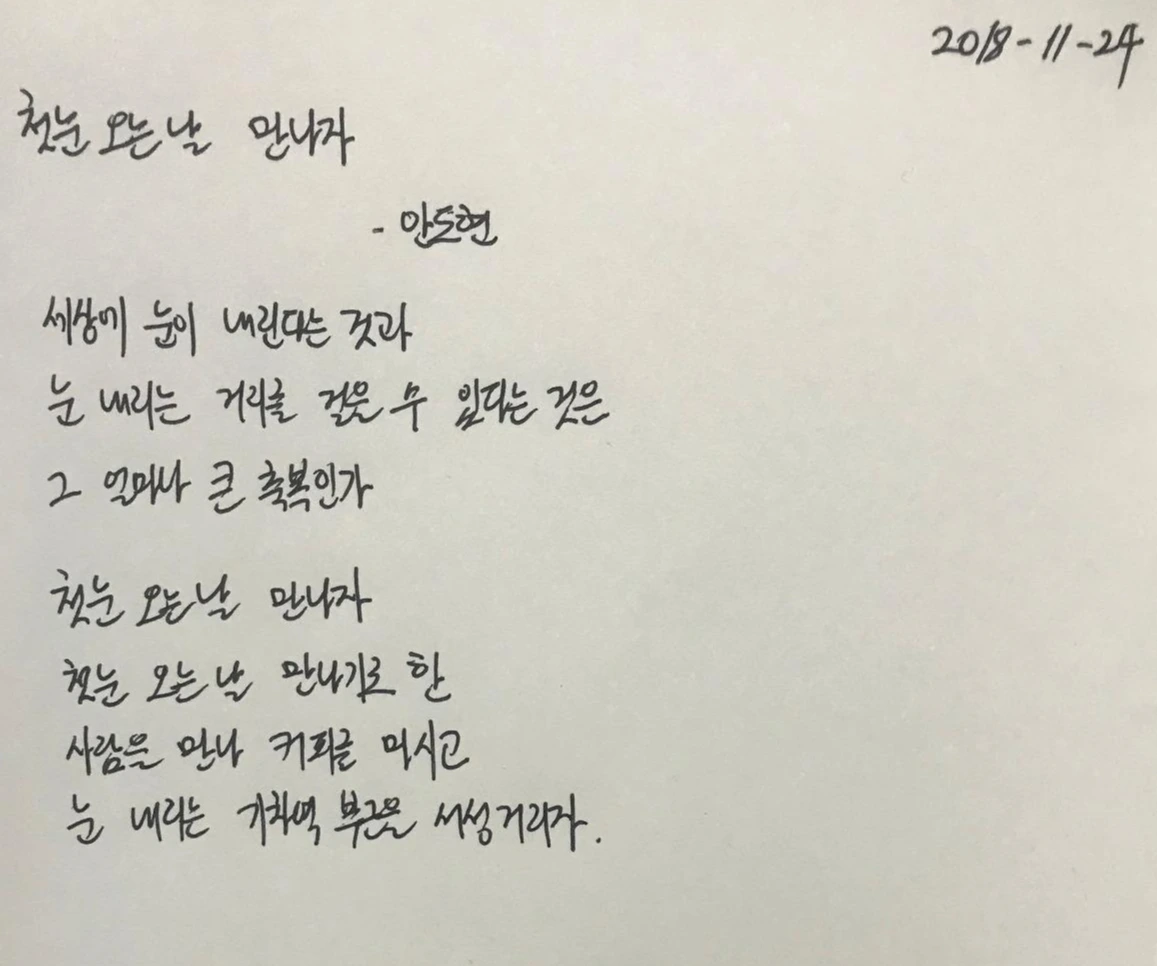 2018-11-24
첫눈 오는 날 만나자
- 안도현
세상에 눈이 내린다는 것과
눈 내리는 거리를 걸을 수 있다는 것은
그 얼마나 큰 축복인가
첫눈 오는 날 만나자
첫눈 오는 날 만나기로 한
사람을 만나 커피를 마시고
눈 내리는 기차역 부근을 서성거리자.